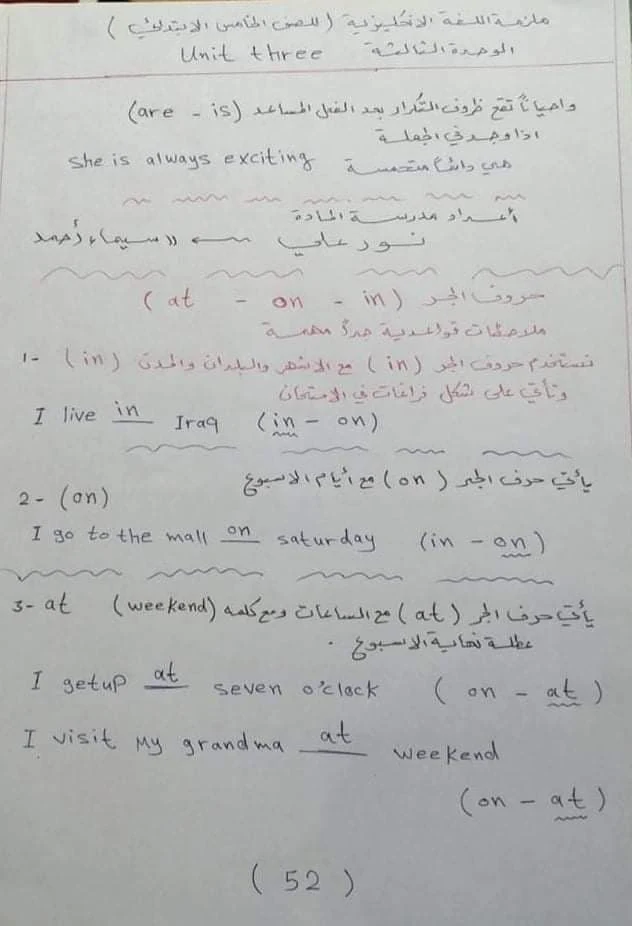 ملزمة اللغة الانكليزية (للصف الخامس الابتدائي)
الوحدة الثالثة Unit three
واحياناً تقع ظروف التكرار بعد الفعل المساعد (are - is)
اذا وجد في الجملة
She is always exciting هي دائماً متحمسة
أعداد مدرسة المادة
نور علي سيماء أحمد
حروف الجر (at - on - in)
ملاحظات قواعدية جداً مهمة
1- نستخدم حروف الجر (in) مع الاشهر والبلدان والمدن (in)
وتأتي على شكل فراغات في الامتحان
I live in Iraq (in - on)
2- (on) يأتي حرف الجر (on) مع أيام الاسبوع
I go to the mall on saturday (in - on)
3- at يأتي حرف الجر (at) مع الساعات ومع كلمة (weekend)
عطلة نهاية الاسبوع .
I getup at seven o'clock (on - at)
I visit My grandma at weekend
(on - at)
(52)